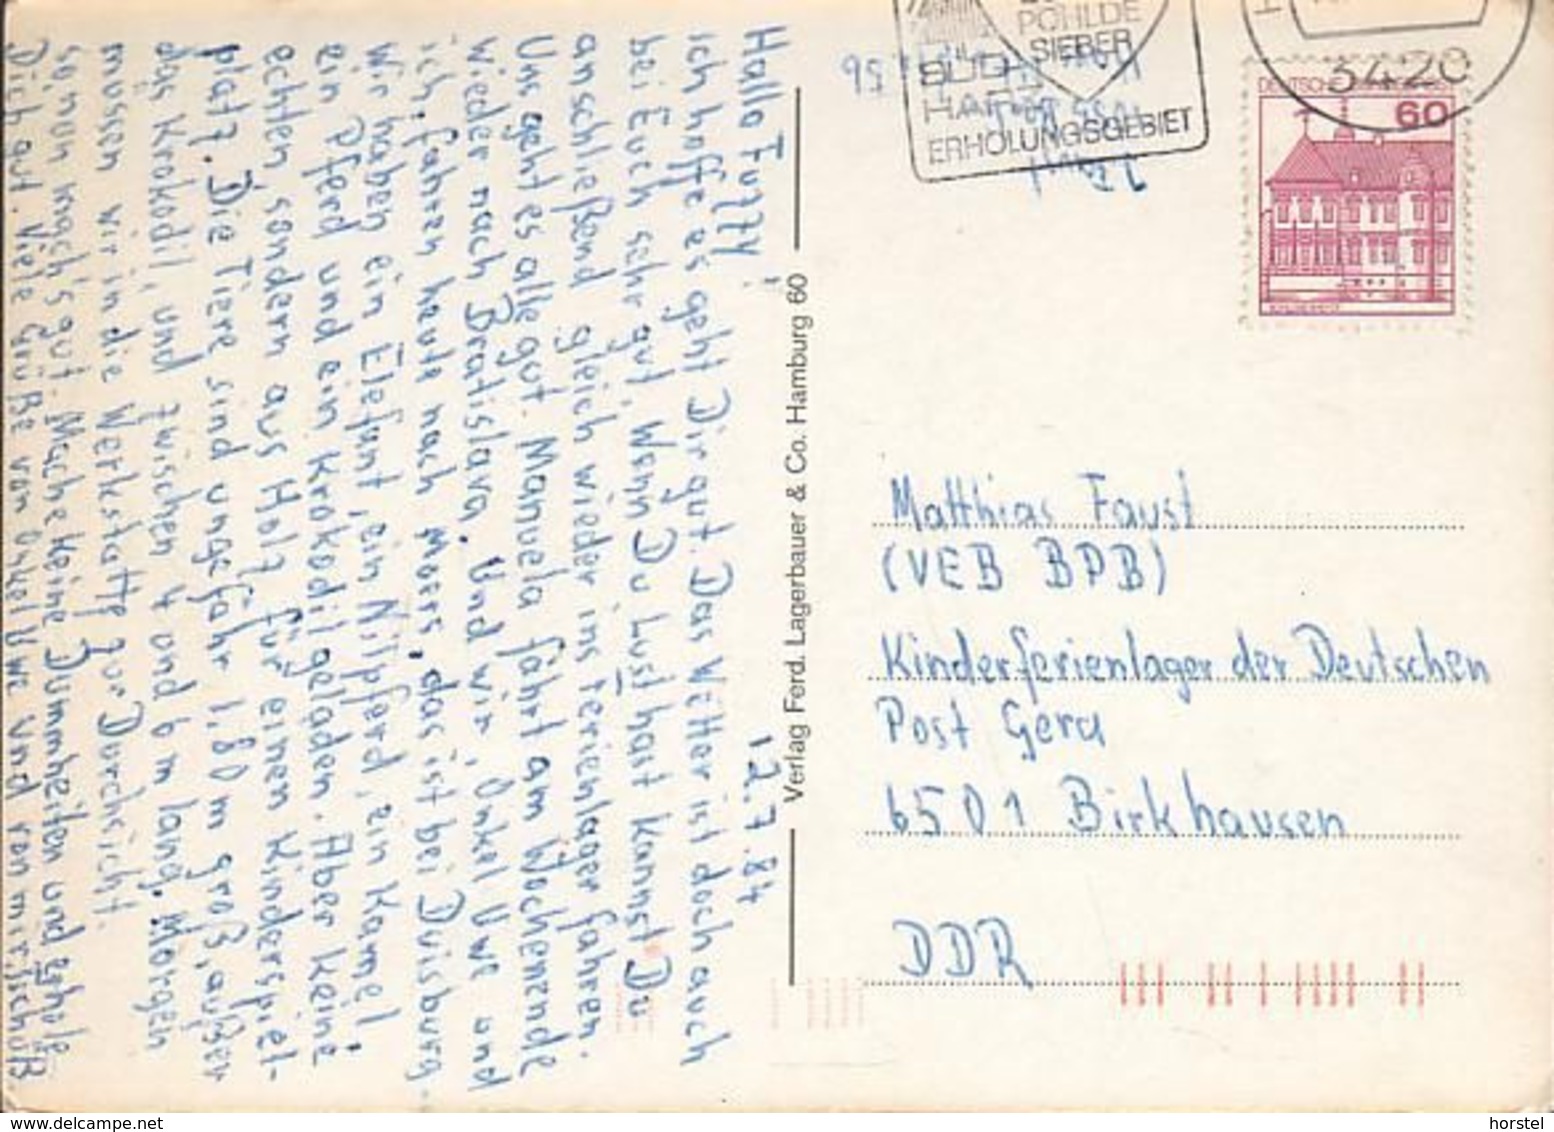 12.7.84
Hallo Fuzzy!
ich hoffe es geht Dir gut. Das Wetter ist doch auch
bei Euch sehr gut. Wenn Du Lust hast kannst Du
anschließend gleich wieder ins Ferienlager fahren.
Uns geht es alle gut. Manuela fährt am Wochenende
wieder nach Bratislava. Und wir, Onkel Uwe und
ich, fahren heute nach Moers, das ist bei Duisburg.
Wir haben ein Elefant, ein Nilpferd, ein Kamel,
ein Pferd und ein Krokodil geladen. Aber keine
echten, sondern aus Holz für einen Kinderspiel-
platz. Die Tiere sind ungefähr 1,80 m groß, außer
das Krokodil, und zwischen 4 und 6 m lang. Morgen
müssen wir in die Werkstatt zur Durchsicht.
So nun mach's gut. Mache keine Dummheiten und erhole
Dich gut. Viele Grüße von Onkel Uwe und von mir, tschüß
Verlag Ferd. Lagerbauer & Co. Hamburg 60
PÖHLDE
SIEBER
SÜD
HARZ
ERHOLUNGSGEBIET
3420
DEUTSCHE
60
Matthias Faust
(VEB BPB)
Kinderferienlager der Deutschen
Post Gera
6501 Birkhausen
DDR
www.delcampe.net
horstel